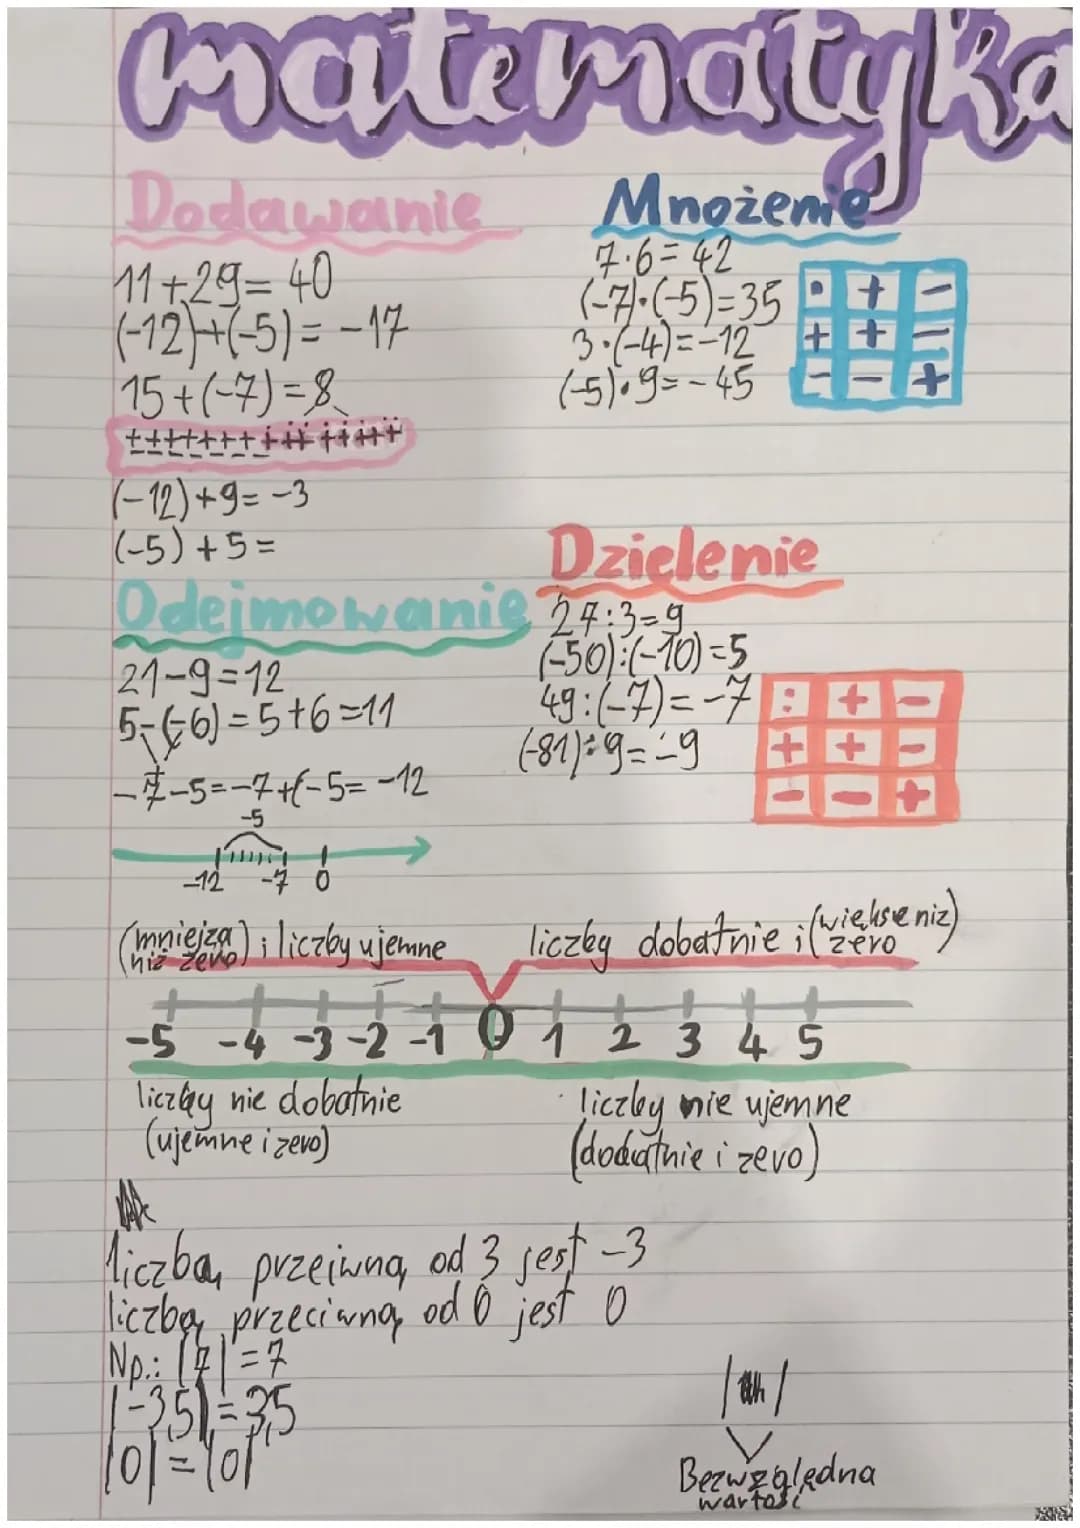 matematyka
Dodawanie
11+29= 40
(-12)+(-5)= -17
15+(-7)=8
(-12)+9= -3
(-5)+5=
Odejmowanie
21-9=12
5-(-6)=5+6=11
-7-5=-7+(-5= -12
-5
-12 -7 0
Mnożenie
7·6=42
(-7)·(-5)=35
3·(-4)=-12
(-5)·9=-45
· + -
+ + -
- - +
Dzielenie
27:3=9
(-50):(-10)=5
49:(-7)=-7
(-81):9=-9
: + -
+ + -
- - +
(mniejza niż zero) i liczby ujemne
liczby dobatnie i (więkse niz zero)
-5 -4 -3 -2 -1 0 1 2 3 4 5
liczby nie dobatnie
(ujemne i zero)
liczby nie ujemne
(dodatnie i zero)
liczbą przeiwną od 3 jest -3
liczbą przeciwną od 0 jest 0
Np.: |7|=7
|-3,5|=3,5
|0|=|0|
| |
Bezwzględna
wartość